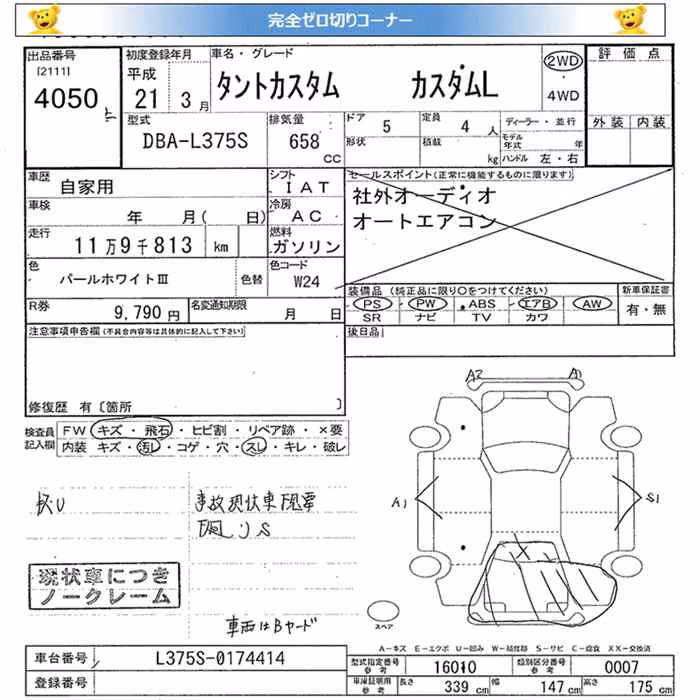 完全ゼロ切りコーナー
出品番号
[2111]
4050
初度登録年月
平成
21年 3月
車名・グレード
タントカスタム カスタムL
2WD
4WD
評価点
外装 内装
型式
DBA-L375S
排気量
658
CC
ドア 5
形状
定員 4人
積載 kg
ディーラー・並行
モデル年式 年
ハンドル 左・右
車歴
自家用
シフト
IAT
セールスポイント(正常に機能するものに限ります)
社外オーディオ
オートエアコン
車検
年 月( 日)
冷房
AC
走行
11万9千813 km
燃料
ガソリン
色
パールホワイトⅢ
色替
色コード
W24
装備品(純正品に限り○をつけてください)
PS PW ABS エアB AW
SR ナビ TV カワ
新車保証書
有・無
R券
9,790円
名変通知期限
月 日
後日品
注意事項申告欄(不具合内容等は具体的に記入して下さい)
修復歴 有〔箇所 〕
検査員記入欄
FW キズ・飛石・ヒビ割・リペア跡・×要
内装 キズ・汚レ・コゲ・穴・スレ・キレ・破レ
A2 A1
A1
S1
事故現状車
現状車につき
ノークレーム
車両はBヤード
スペア
A-キズ E-エクボ U-凹み W-補修跡 S-サビ C-腐食 XX-交換済
車台番号
L375S-0174414
登録番号
型式指定番号
参考
16010
類別区分番号
参考
0007
車庫証明用
参考
長さ 339cm 幅 147cm 高さ 175cm